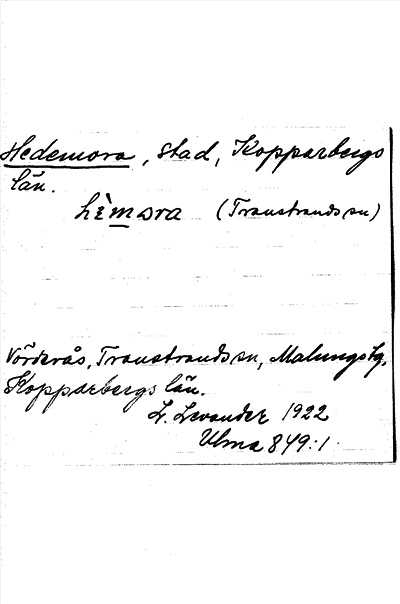 Hedemora, stad, Kopparbergs
län.
hèmωra (Transtrands sn)
Vörderås, Transtrands sn, Malungs tg,
Kopparbergs län.
L. Levander 1922
Ulma 849:1.